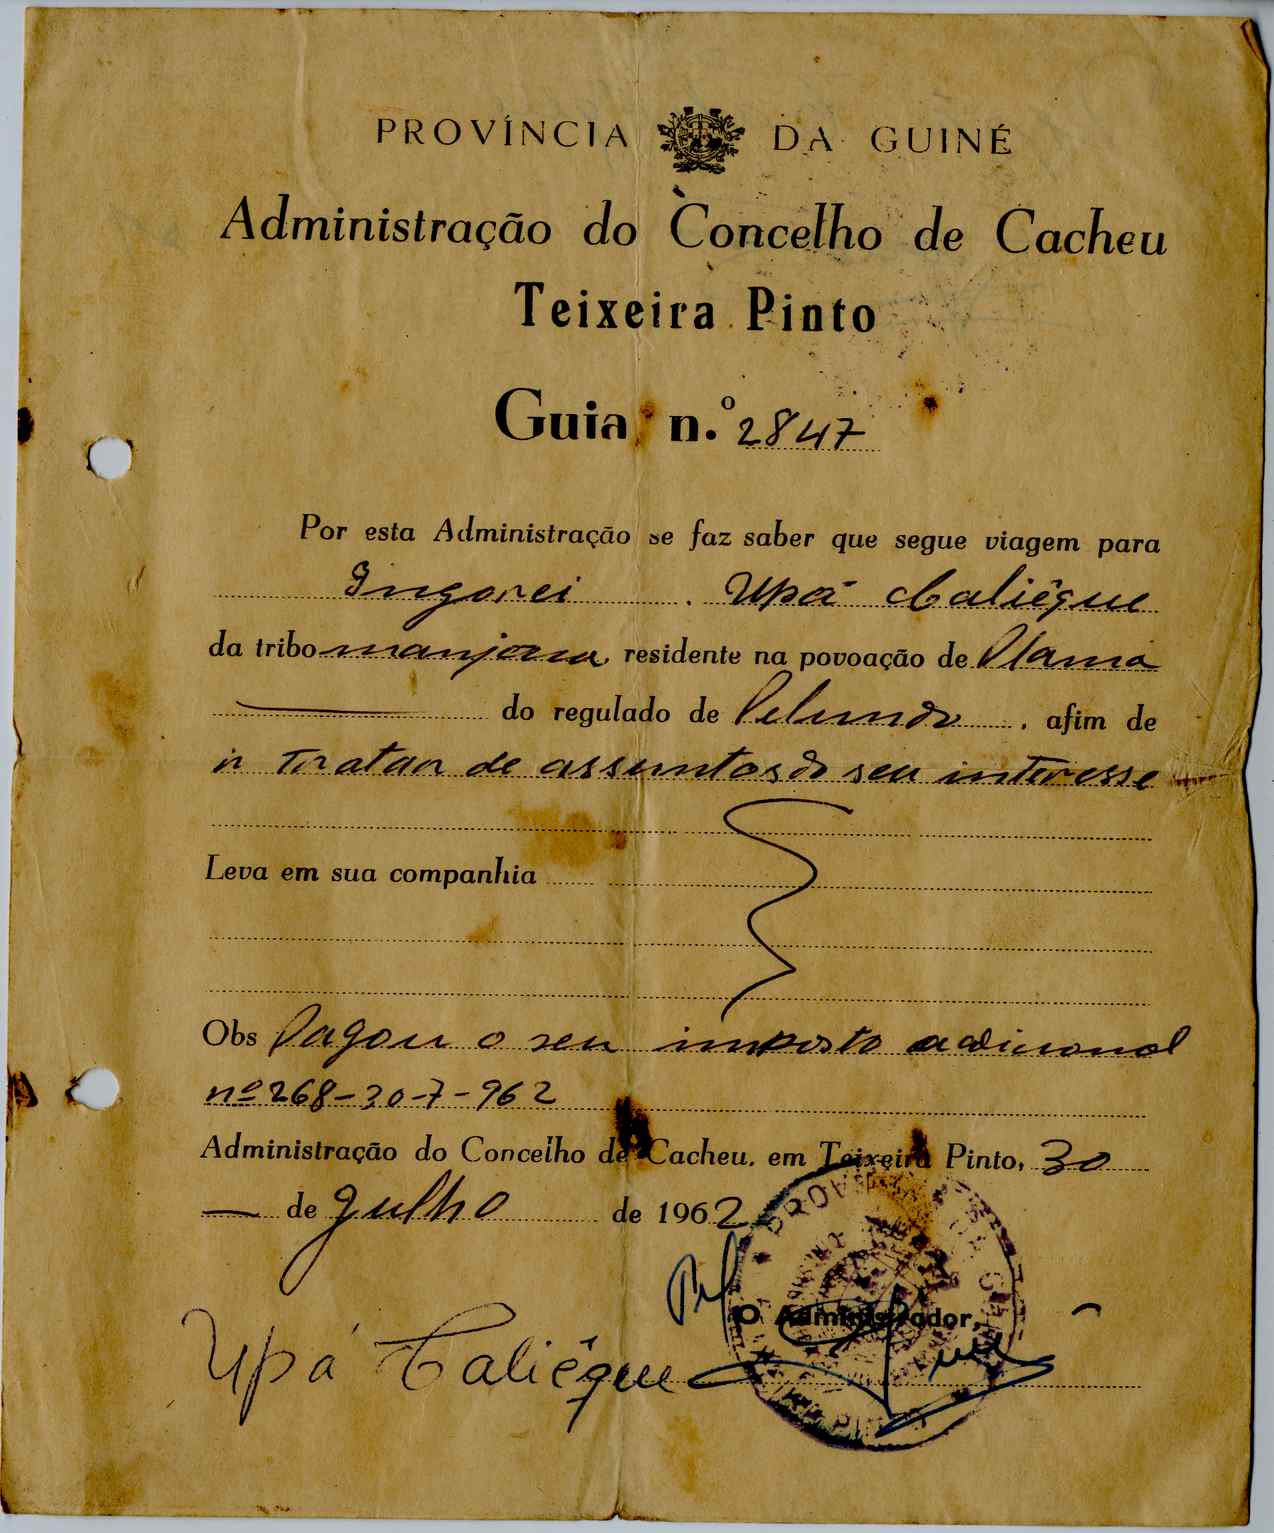 PROVÍNCIA DA GUINÉ
Administração do Concelho de Cacheu
Teixeira Pinto
Guia n.º 2847
Por esta Administração se faz saber que segue viagem para
Ingorei. Upá Caliéque
da tribo manjaca, residente na povoação de Plama
do regulado de Pelundo, afim de
ir tratar de assuntos do seu interesse
Leva em sua companhia
Obs Pagou o seu imposto adicional
nº 268-30-7-962
Administração do Concelho de Cacheu, em Teixeira Pinto, 30
de Julho de 1962
Pel O Administrador,
Upá Caliéque